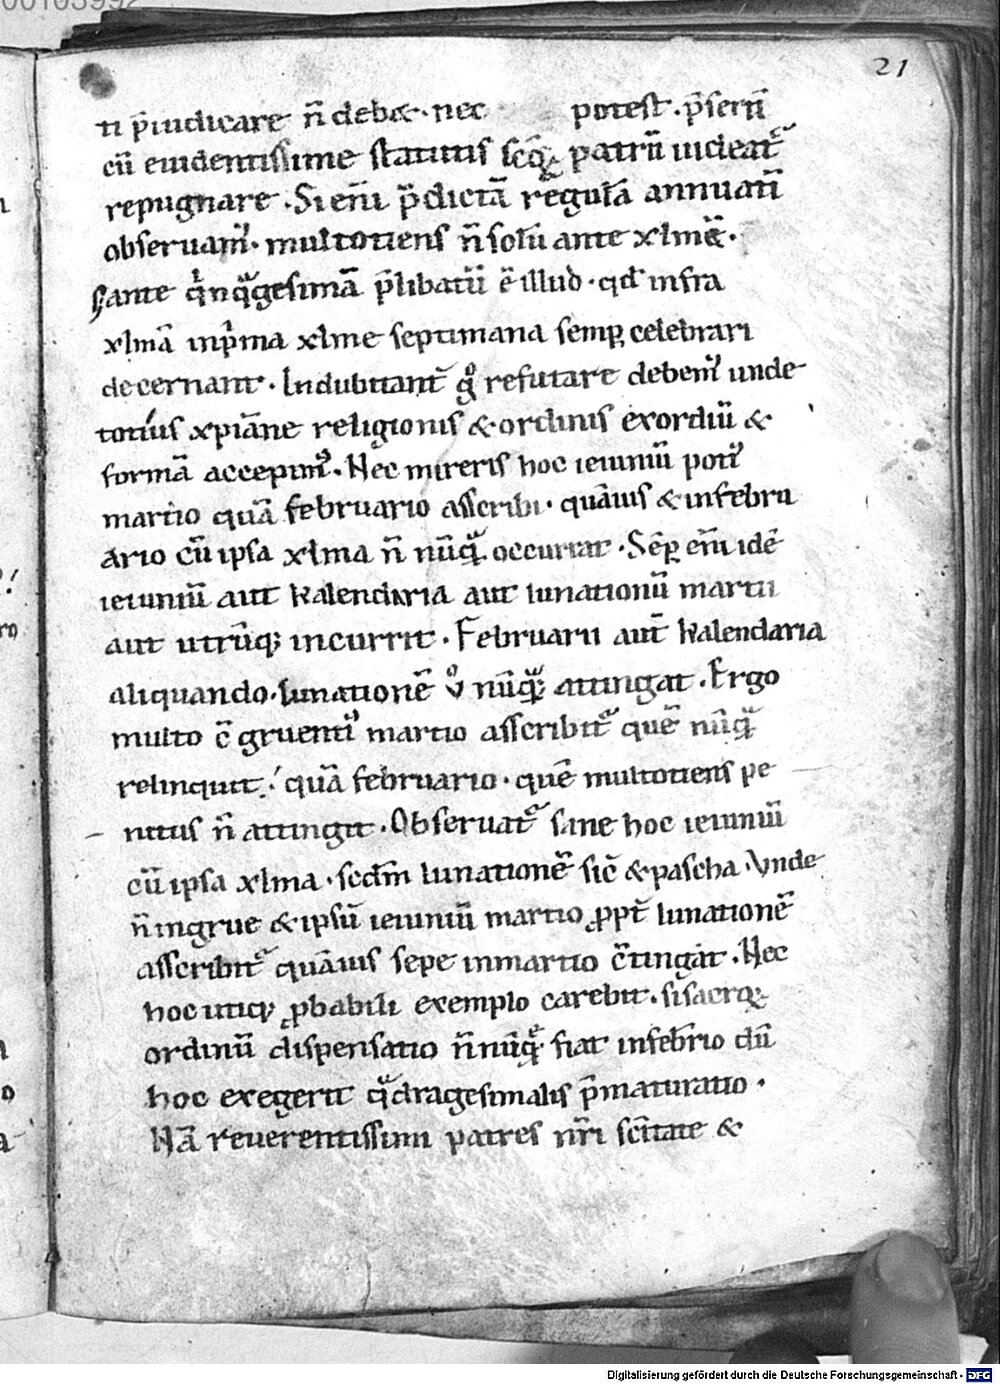 00103992
21
ti p̄iudicare n̄ deb&. nec potest. p̄serti̅
cū euidentissime statutis sc̄oꝝ patrū uideat᷑
repugnare. Si eni̅ p̄dictā regulā annuati̅
obseruam᷒. multotiens n̄ solū ante xlmā.
s; ante q̇nqᷓgesimā p̄libatū ē illud. qđ infra
xlmā inp̓ma xlme septimana semꝑ celebrari
decernant. Indubitant̄ gͦ refutare debem᷒ unde
totius xp̄iane religionis & ordinis exordiū &
formā accepim᷒. Nec mireris hoc ieiuniū poti᷒
martio quā februario asscribi. quāuis & infebru
ario cū ipsa xlma n̄ nūqᷓ occurrat. Sēꝑ eni̅ idē
ieiuniū aut kalendaria aut lunationū martii
aut utrūq; incurrit. Februarii aut̄ kalendaria
aliquando. lunationē uͦ nūqᷓ attingat. Ergo
multo c̄gruenti᷒ martio asscribit᷑ quē nūqᷓ
relinquit. quā februario. quē multotiens pe
nitus n̄ attingit. Obseruat᷑ sane hoc ieiuniū
cū ipsa xlma. scdm̄ lunationē sic̄ & pascha. Vnde
n̄ingrue & ipsū ieiuniū martio ꝓpt̄ lunationē
asscribit᷑ quāuis sepe inmartio c̄tingat. Nec
hoc utiq; ꝓbabili exemplo carebit. si sacroꝝ
ordinū dispensatio n̄nūqᷓ fiat infebr̄io dū
hoc exegerit qᷓdragesimalis p̄maturatio.
Nā reuerentissimi patres nr̄i sc̄itate &
Digitalisierung gefördert durch die Deutsche Forschungsgemeinschaft - DFG